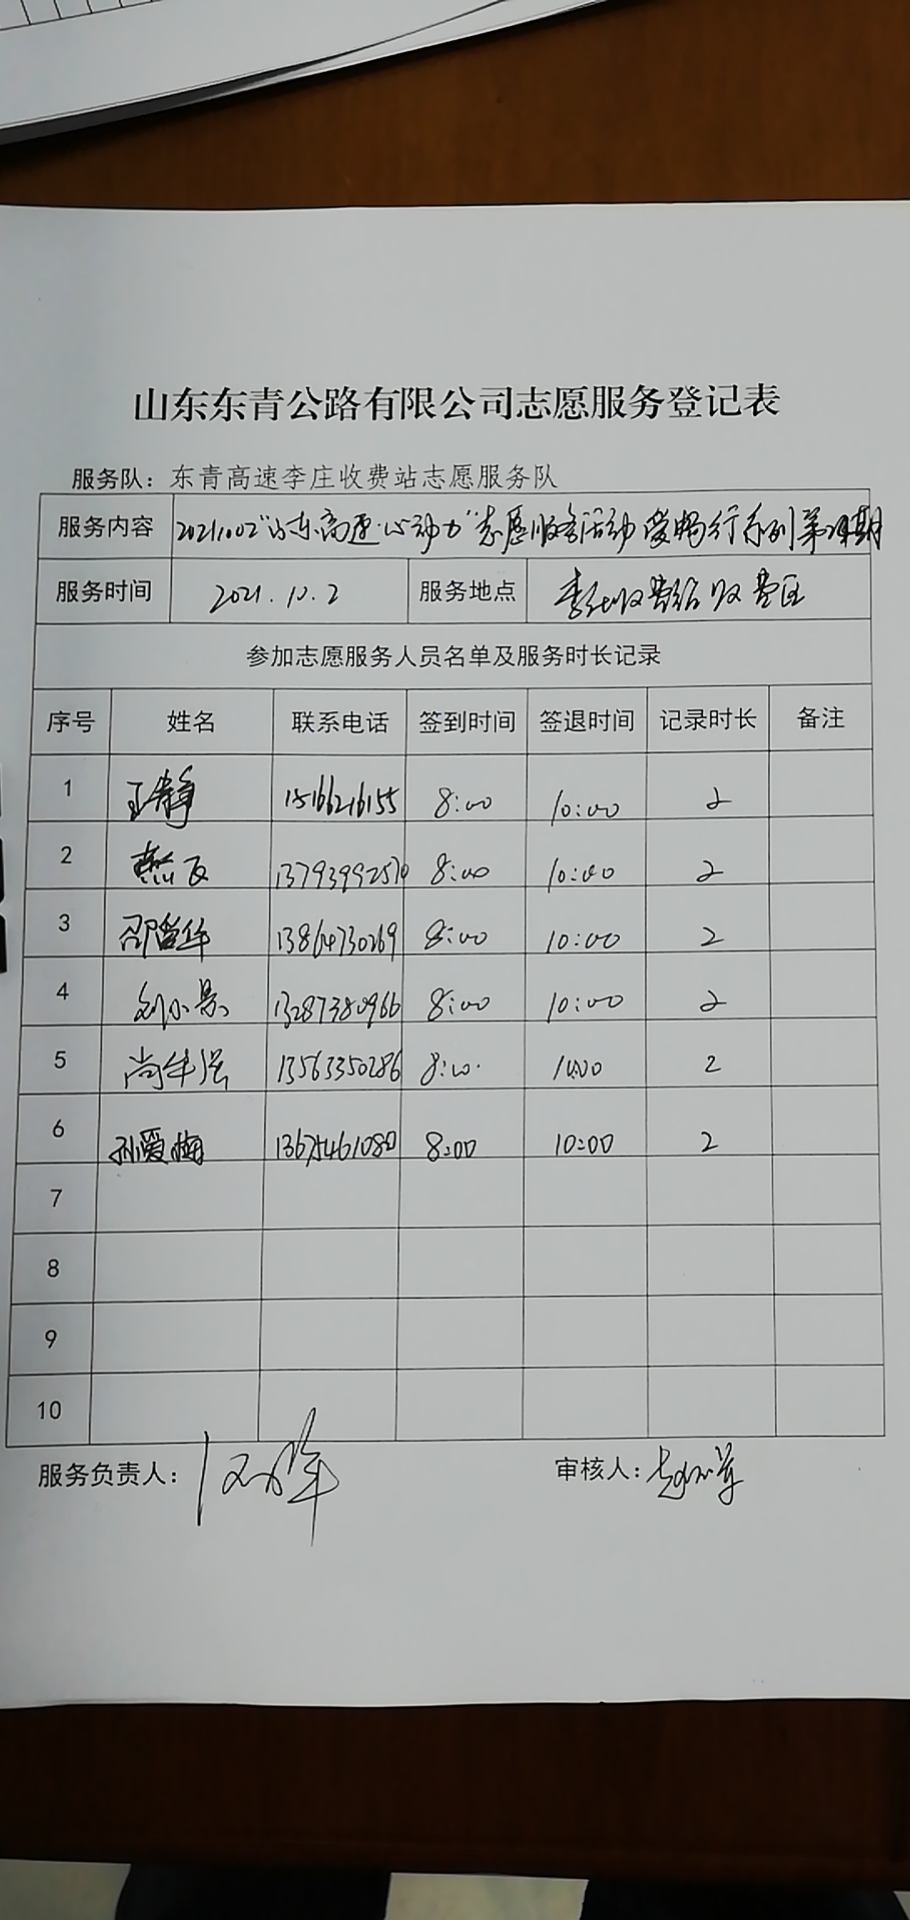 山东东青公路有限公司志愿服务登记表
服务队：东青高速李庄收费站志愿服务队
服务内容 20211002"山东高速·心动力"志愿服务活动 爱畅行系列第 期
服务时间 2021.10.2 服务地点 李庄收费站收费区
参加志愿服务人员名单及服务时长记录
序号 姓名 联系电话 签到时间 签退时间 记录时长 备注
1 王静 15166216155 8:00 10:00 2
2 13793992570 8:00 10:00 2
3 邵 华 13864730269 8:00 10:00 2
4 刘小 13287380966 8:00 10:00 2
5 尚 强 13563350286 8:00 10:00 2
6 孙爱梅 13675461080 8:00 10:00 2
7
8
9
10
服务负责人： 审核人：